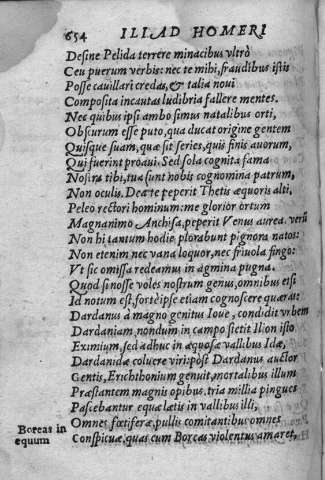 654 ILIAD HOMERI
Desine Pelida terrere minacibus vltrò
Ceu puerum verbis: nec te mihi, fraudibus istis
Posse cauillari credas, & talia noui
Composita incautas ludibria fallere mentes.
Nec quibus ipsi ambo simus natalibus orti,
Obscurum esse puto, qua ducat origine gentem
Quisque suam, quæ sit series, quis finis auorum,
Qui fuerint proaui. Sed sola cognita fama
Nostra tibi, tua sunt nobis cognomina patrum,
Non oculis. Dea te peperit Thetis æquoris alti,
Peleo rectori hominum: me glorior ortum
Magnanimo Anchisa, peperit Venus aurea. verū
Non hi tantum hodie plorabunt pignora natos:
Non etenim nec vana loquor, nec friuola fingo:
Vt sic omissa redeamus in agmina pugna.
Quod si nosse voles nostrum genus, omnibus etsi
Id notum est, fortè ipse etiam cognoscere quæras:
Dardanus à magno genitus Ioue, condidit vrbem
Dardaniam, nondum in campo sictit Ilion isto
Eximium, sed adhuc in aquosæ vallibus Idæ,
Dardanidæ coluere viri: pòst Dardanus auctor
Gentis, Erichthonium genuit, mortalibus illum
Præstantem magnis opibus. tria millia pingues
Pascebantur equæ lætis in vallibus illi,
Omnes fœtiferæ, pullis comitantibus omnes
Boreas in
equum
Conspicuæ, quas cum Boreas violentus amaret,